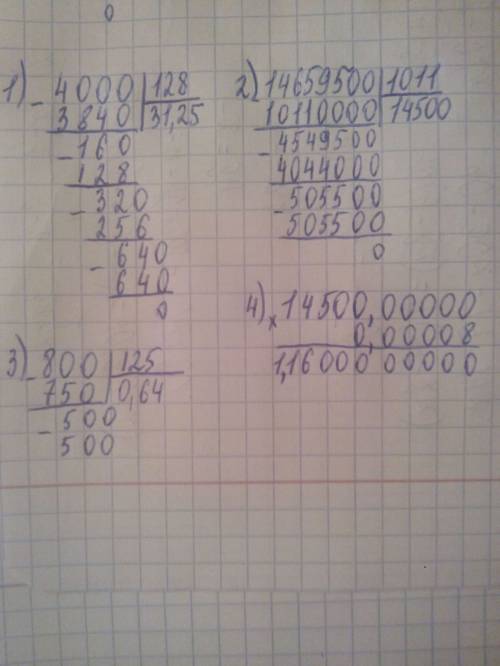 0
1) - 4000 | 128
3840 | 31,25
- 160
128
- 320
256
- 640
640
0
2) 14659500 | 1011
10110000 | 14500
- 4549500
4044000
- 505500
505500
0
3) - 800 | 125
750 | 0,64
- 500
500
4) x 14500,00000
0,00008
1,16000 00000